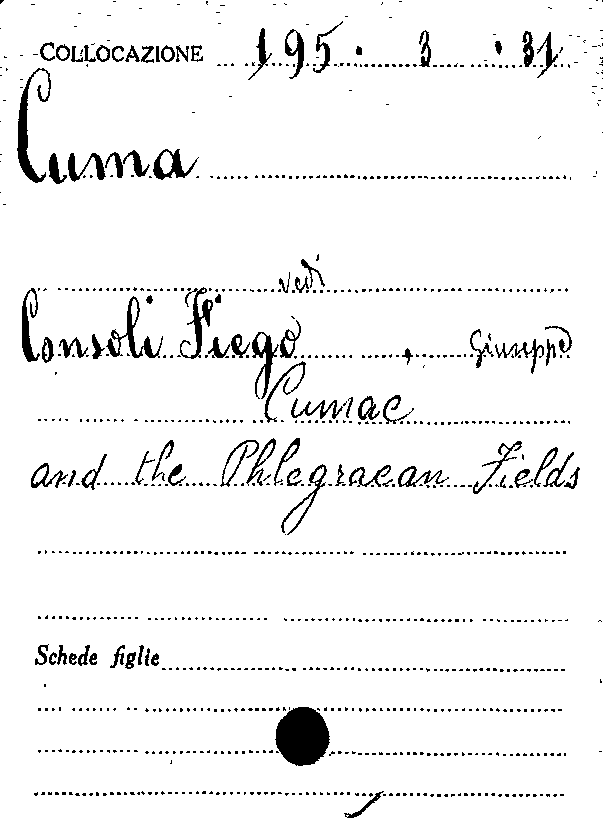 COLLOCAZIONE 195. 3. 31
Cuma
vedi
Consoli Fiego, Giuseppe
Cumae
and the Phlegraean Fields
Schede figlie